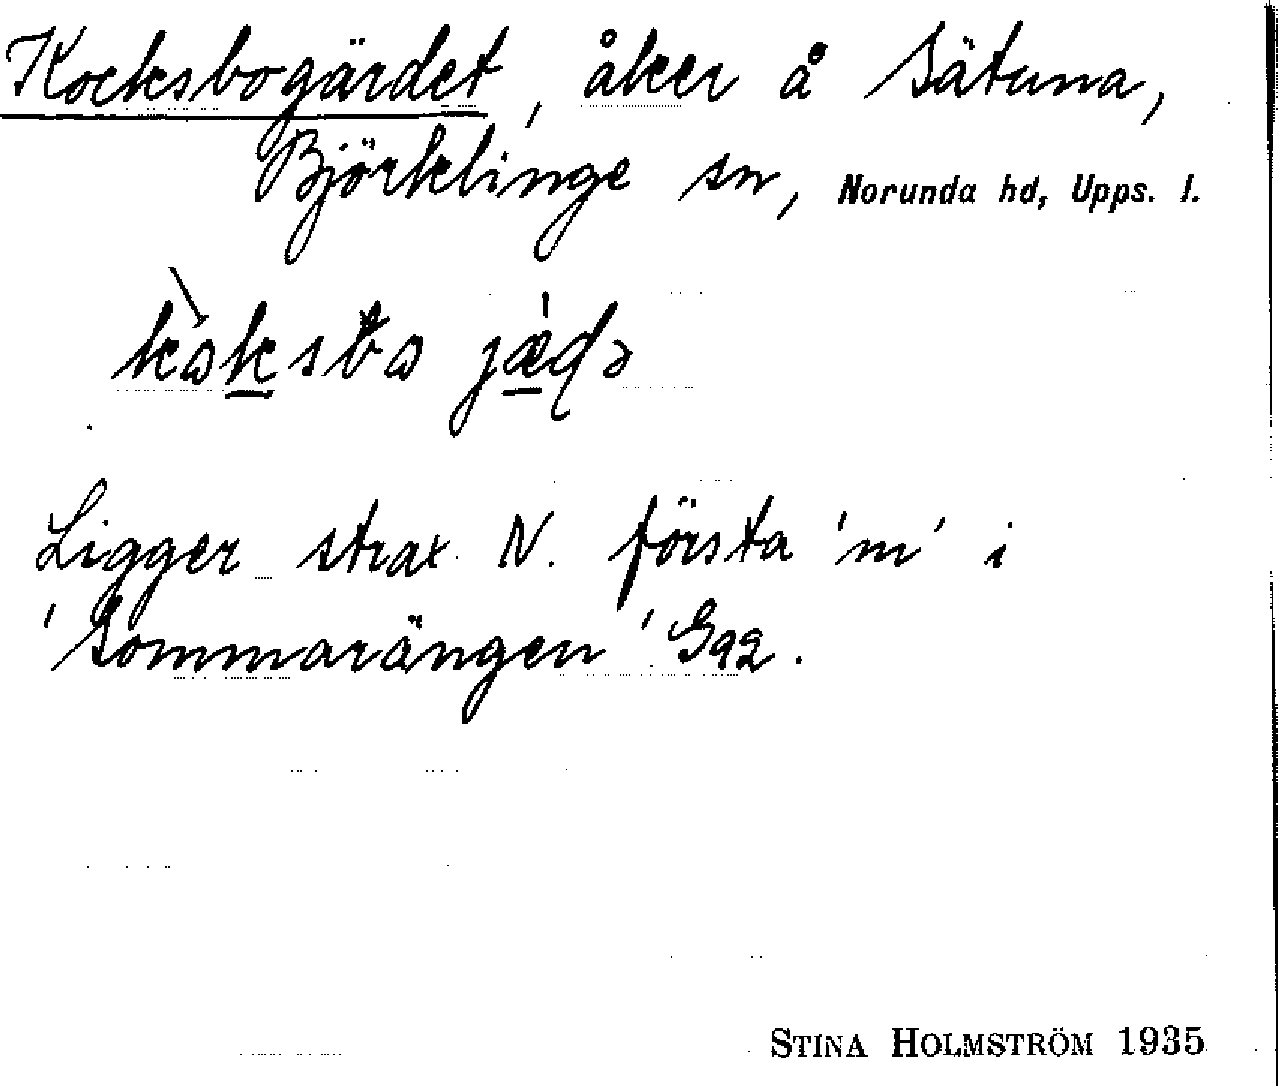 Kocksbogärdet, åker å Sätuna,
Björklinge sn, Norunda hd, Upps. l.
Ligger strax N. första 'm' i
'Sommarängen' Gqq.
STINA HOLMSTRÖM 1935